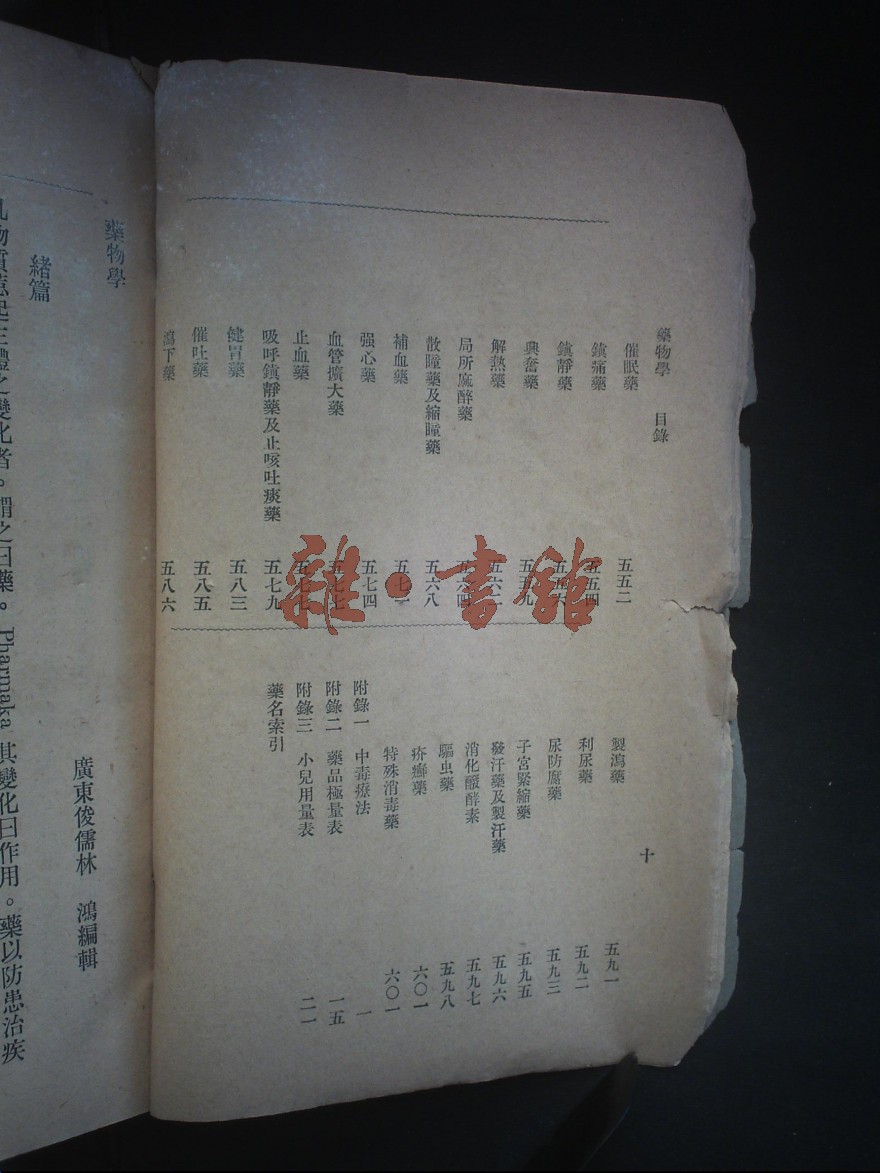 藥物學 目錄
催眠藥 五五二
鎮痛藥 五五四
鎮靜藥
興奮藥 五五九
解熱藥
局所麻醉藥
散瞳藥及縮瞳藥 五六八
補血藥
强心藥 五七四
血管擴大藥
止血藥
吸呼鎮靜藥及止咳吐痰藥 五七九
健胃藥 五八三
催吐藥 五八五
瀉下藥 五八六
十
製瀉藥 五九一
利尿藥 五九二
尿防腐藥 五九三
子宮緊縮藥 五九五
發汗藥及製汗藥 五九六
消化醱酵素 五九七
驅虫藥 五九八
疥癬藥 六〇一
特殊消毒藥 六〇一
附錄一 中毒療法 一
附錄二 藥品極量表 一五
附錄三 小兒用量表 二一
藥名索引
雜·書館
藥物學
廣東俊儒林 鴻編輯
緒篇
物質惹起生體之變化者。謂之曰藥。Pharmaka 其變化曰作用。藥以防患治疾